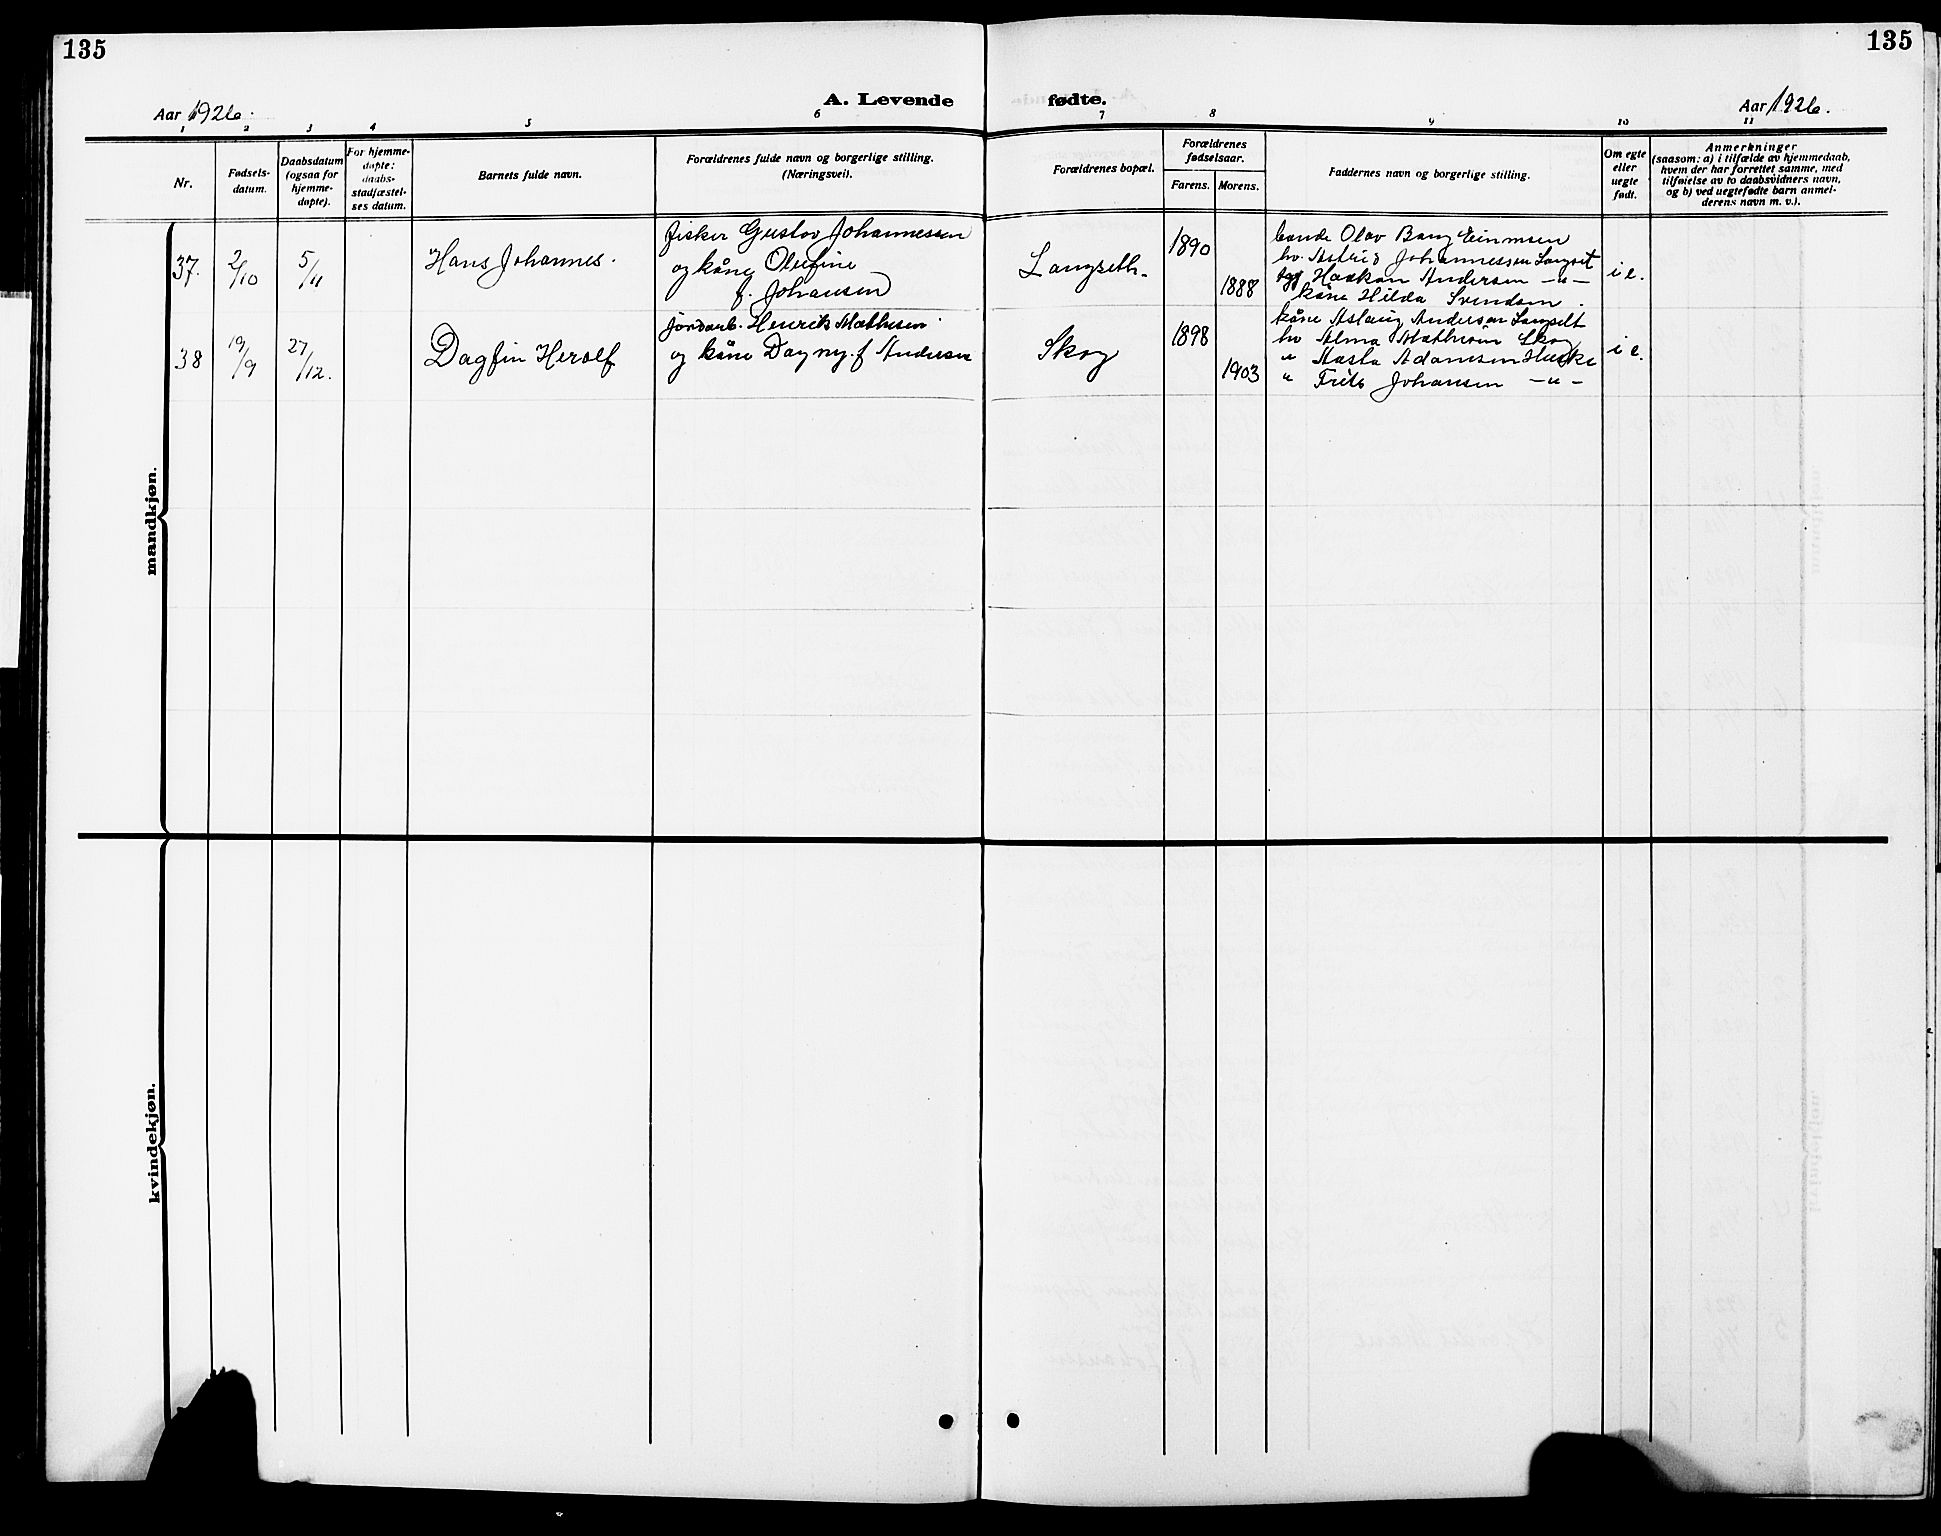 135
135
Aar 1926.
A. Levende
fødte.
Aar 1926.
1 2 3 4 5 6 7 8 9 10 11
Nr.
Fødsels-
datum.
Daabsdatum
(ogsaa for
hjemme-
døpte).
For hjemme-
døpte:
daabs-
stadfæstel-
ses datum.
Barnets fulde navn.
Forældrenes fulde navn og borgerlige stilling.
(Næringsvei).
Forældrenes bopæl.
Forældrenes
fødselsaar.
Farens. Morens.
Faddernes navn og borgerlige stilling.
Om egte
eller
uegte
født.
Anmerkninger
(saasom: a) i tilfælde av hjemmedaab,
hvem der har forrettet samme, med
tilføielse av to daabsvidners navn,
og b) ved uegtefødte barn anmel-
derens navn m. v.).
mandkjøn.
37. 2/10 5/11
Hans Johannes.
fisker Gustav Johannessen
og kåne Olufine
f. Johansen
Langseth.
1890
1888
bonde Olav Bang Einmsen
hv. Astrid Johannessen Langset
Haakon Andersen -"-
kåne Hilda Svendsen.
i e.
38 19/9 27/12.
Dagfin Herolf
jordarb. Henrik Mathisen
og kåne Dagny f. Andersen
Skog
1898
1903
kåne Aslaug Andersen Langset
hv Alma Mathisen Skog
" Aasta Adamsen
" Frits Johansen -"-
i e.
kvindekjøn.